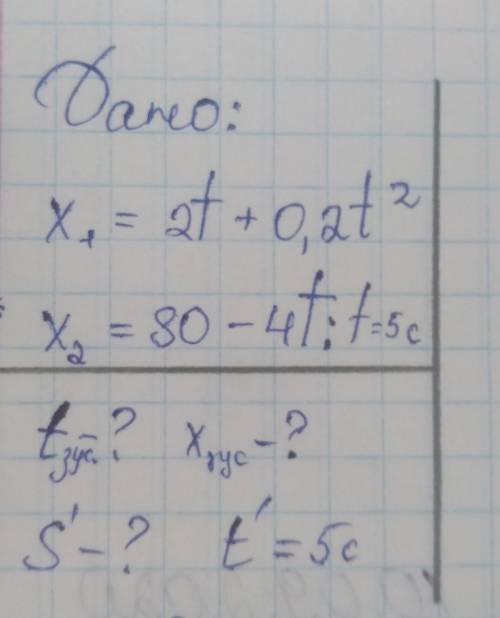 Дано:
x₁ = 2t + 0,2t²
x₂ = 80 - 4t; t=5c
tзус.-? xзус-?
S'-? t' = 5c